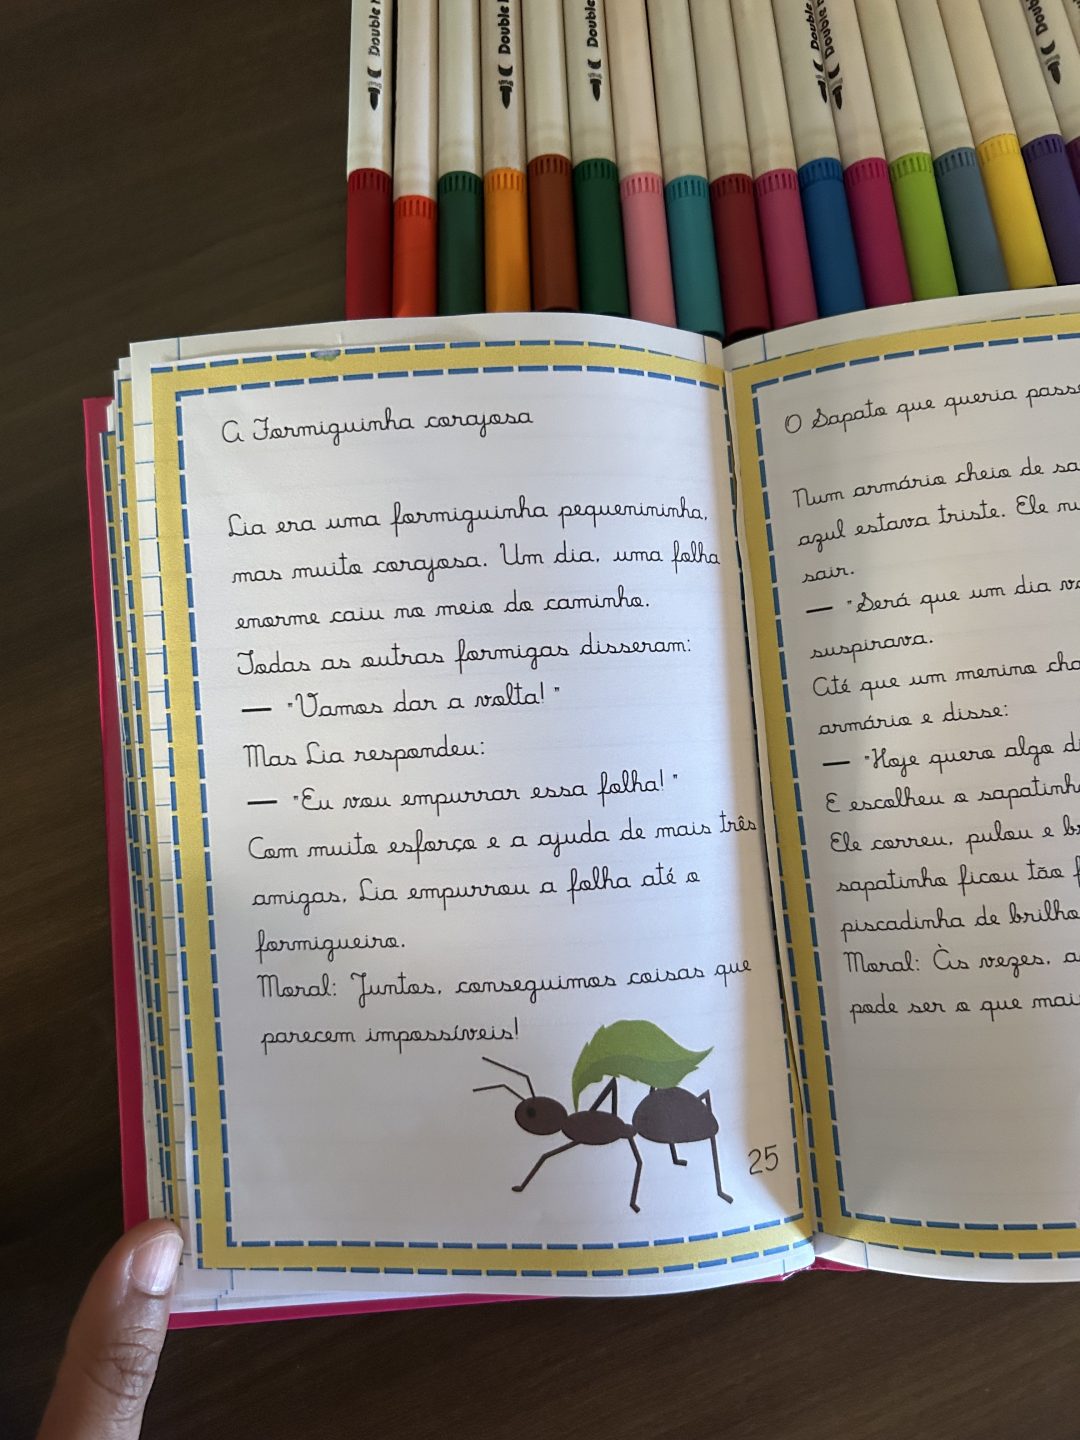 Double
Double
Double
Double
Double
Double
A Formiguinha corajosa
Lia era uma formiguinha pequenininha,
mas muito corajosa. Um dia, uma folha
enorme caiu no meio do caminho.
Todas as outras formigas disseram:
— "Vamos dar a volta! "
Mas Lia respondeu:
— "Eu vou empurrar essa folha! "
Com muito esforço e a ajuda de mais três
amigas, Lia empurrou a folha até o
formigueiro.
Moral: Juntos, conseguimos coisas que
parecem impossíveis!
25
O Sapato que queria
Num armário cheio de
azul estava triste. Ele
sair.
— "Será que um dia
suspirava.
Até que um menino
armário e disse:
— "Hoje quero algo
E escolheu o
Ele correu, pulou e
sapatinho ficou tão
piscadinha de
Moral: Às vezes,
pode ser o que